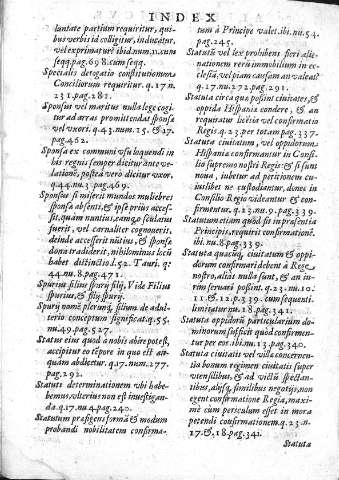 INDEX
luntate partium requiritur, qui-
bus verbis id colligitur, inducatur,
vel exprimatur ibid. num. 11. cum
seqq. pag. 698. cum seqq.
Specialis derogatio constitutionum
Conciliorum requiritur. q. 17. n.
231. pag. 281.
Sponsus vel maritus nulla lege cogi
tur ad arras promittendas sponsa
vel uxori. q. 43. num. 25. & 17.
pag. 462.
Sponsa ex communi usu loquendi in
his regnis semper dicitur ante ve-
lationē, postea verò dicitur uxor.
q. 44. nu. 3. pag. 469.
Sponsus si miserit mundos muliebres
sponsa absenti, & ipse prius acces-
sit, quàm nuntius, eamq́; osculatus
fuerit, vel carnaliter cognouerit,
deinde accesserit nūtius, & sponsa
dona tradiderit, nihilominus locū
habet distinctio l. 52. Tauri. q:
44. nu. 8. pag. 471.
Spurius filius spurij filij, Vide Filius
spurius, & filij spurij.
Spurij nomē plerunq; filium de adul-
terio conceptum significat. q. 55.
nu. 49. pag. 527.
Status eius quod à nobis abire potest,
accipitur eo tēpore in quo est ali-
quàm abdicetur. q. 17. num. 277.
pag. 292.
Statuti determinationem ubi habe-
bemus, ulterius non est inuestigan-
da. q. 17. nu. 4. pag. 240.
Statutum præfigens formā & modum
probandi nobilitatem confirma-
tum à Principe valet. ibi. nu. 54.
pag. 245.
Statutū vel lex prohibens fieri alie-
nationem rerū immobilium in ec-
clesiā, vel piam causam an valeat?
q. 17. nu. 272. pag. 291.
Statuta circa quæ possint ciuitates, &
oppida Hispaniæ condere, & an
requiratur licētia vel confirmatio
Regis. q. 23. per totam pag. 337.
Statuta ciuitatum, vel oppidorum
Hispaniæ confirmantur in Consi-
lio supremo nostri Regis: & si sunt
noua, iubetur ad petitionem cu-
iuslibet ne custodiantur, donec in
Consilio Regio videantur & con-
firmentur. q. 23. nu. 9. pag. 339.
Statutum etiam quòd sit in præsentia
Principis, requirit confirmationē.
ibi. nu. 8. pag. 339.
Statuta quæcūq; ciuitatum & oppi-
dorum confirmari debent à Rege
nostro, aliàs nulla sunt, & an in-
firmseruari possint. q. 23. nu. 10.
11. & 12. p. 339. cum sequenti.
limitatur nu. 18. pag. 341.
Statuta oppidorū particularium do-
minorum sufficit quòd confirmen-
tur per eos. ibi. nu. 13. q. pag. 340.
Statuta ciuitatis vel villæ concernen-
tia bonum regimen ciuitatis super
utensilibus, & ad victū spectan-
tibus, absq; similibus negotijs, non
egent confirmatione Regia, maxi-
mè cum periculum esset in mora
petendi confirmationem. q. 23. n.
17. & 18. pag. 341.
Statuta